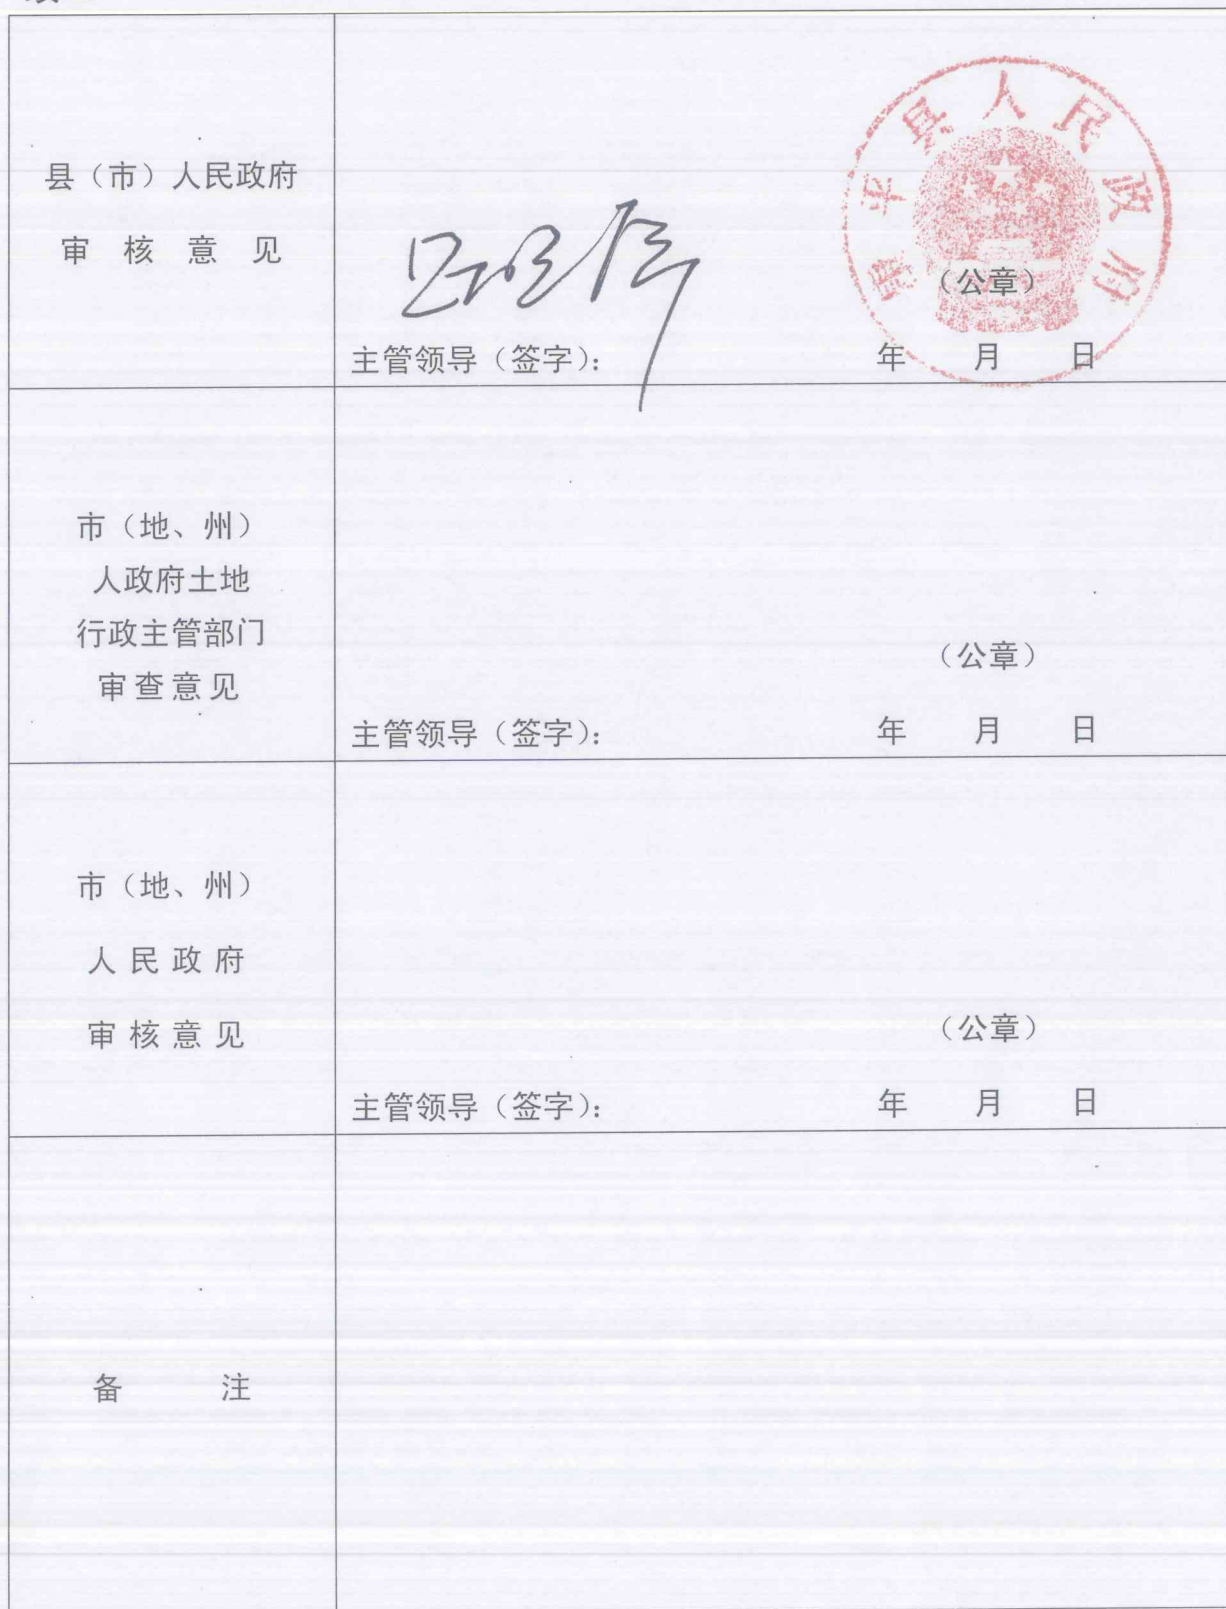 县（市）人民政府
审 核 意 见
县人民政府
（公章）
主管领导（签字）： 年 月 日
市（地、州）
人政府土地
行政主管部门
审查意见
（公章）
主管领导（签字）： 年 月 日
市（地、州）
人民政府
审核意见
（公章）
主管领导（签字）： 年 月 日
备 注